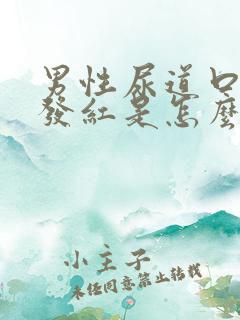 男性尿道口
發紅是怎麼
小主子
未經同意禁止轉載